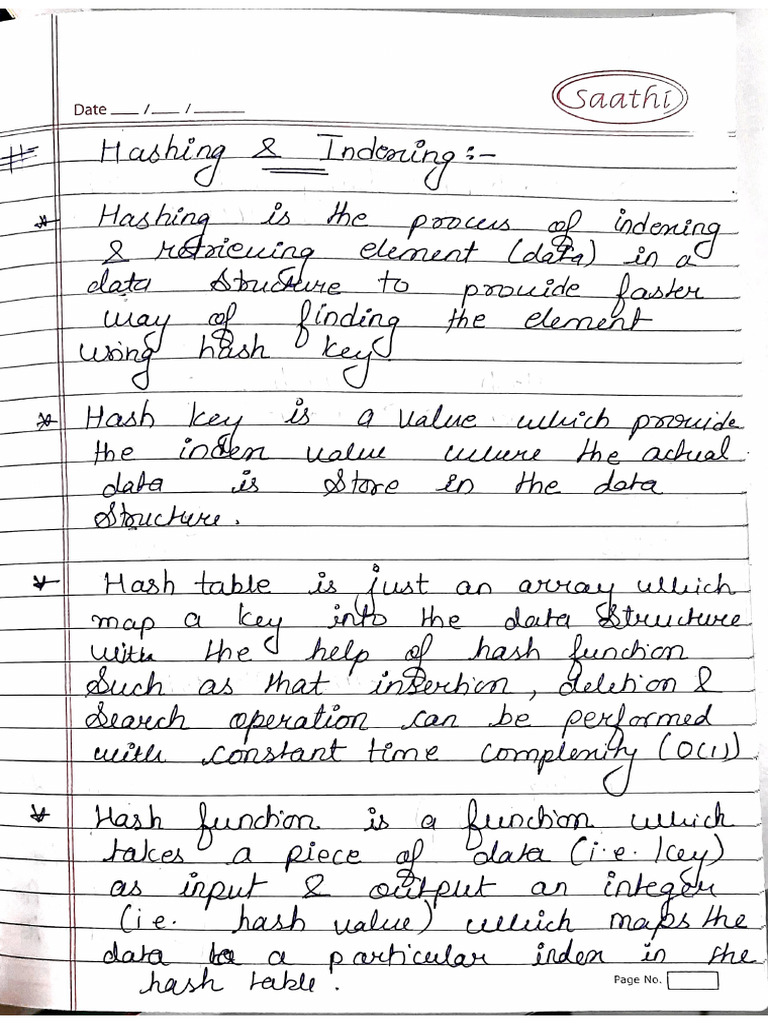 Saathi
Date ___ /___ /______
# Hashing & Indexing :-
* Hashing is the process of indexing
& retrieving element (data) in a
data structure to provide faster
way of finding the element
using hash key
* Hash key is a value which provide
the index value where the actual
data is store in the data
structure.
* Hash table is just an array which
map a key into the data structure
with the help of hash function
such as that insertion, deletion &
search operation can be performed
with constant time complexity (O(1))
* Hash function is a function which
takes a piece of data (i.e. key)
as input & output an integer
(i.e. hash value) which maps the
data to a particular index in the
hash table.
Page No.